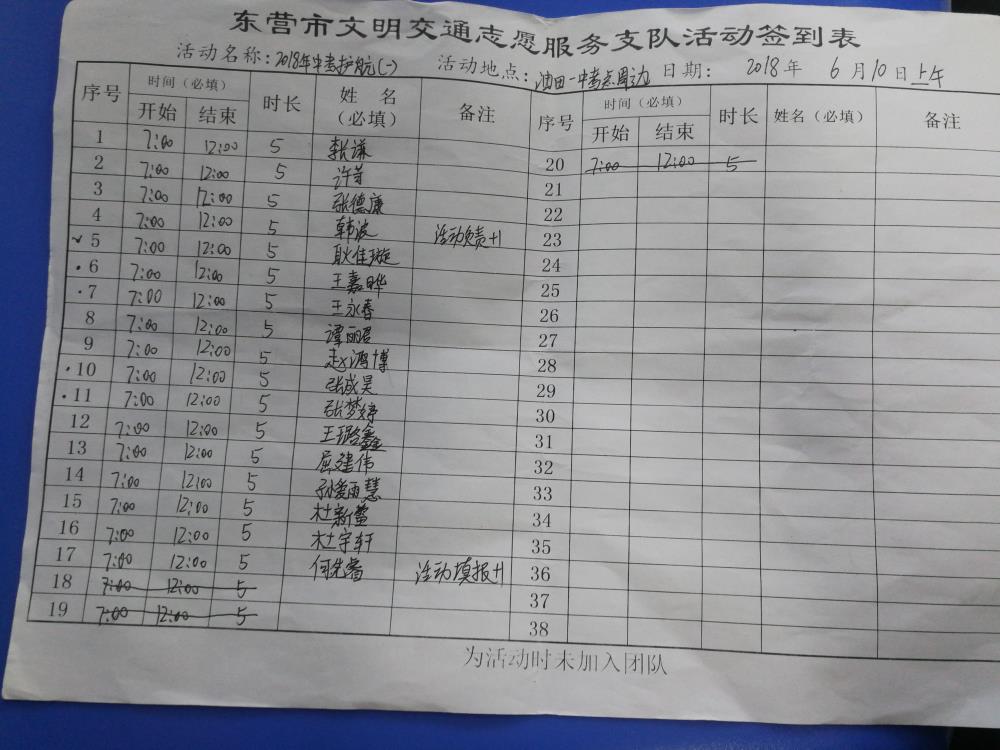 东营市文明交通志愿服务支队活动签到表
活动名称:2018年中考护航(一) 活动地点:油田一中考点周边 日期: 2018年 6月10日上午
序号 时间(必填) 时长 姓 名(必填) 备注 序号 时间(必填) 时长 姓名(必填) 备注
开始 结束 开始 结束
1 7:00 12:00 5 张谦 20 7:00 12:00 5
2 7:00 12:00 5 许芳 21
3 7:00 12:00 5 张德廉 22
4 7:00 12:00 5 韩波 活动负责+1 23
✓5 7:00 12:00 5 耿佳璇 24
·6 7:00 12:00 5 王嘉晔 25
·7 7:00 12:00 5 王永春 26
8 7:00 12:00 5 谭丽君 27
9 7:00 12:00 5 赵鸿博 28
·10 7:00 12:00 5 张成昊 29
·11 7:00 12:00 5 张梦婷 30
12 7:00 12:00 5 王璐鑫 31
13 7:00 12:00 5 屈建伟 32
14 7:00 12:00 5 孙爱丽慧 33
15 7:00 12:00 5 杜新蕾 34
16 7:00 12:00 5 杜宇轩 35
17 7:00 12:00 5 何先睿 活动填报+1 36
18 7:00 12:00 5 37
19 7:00 12:00 5 38
为活动时未加入团队